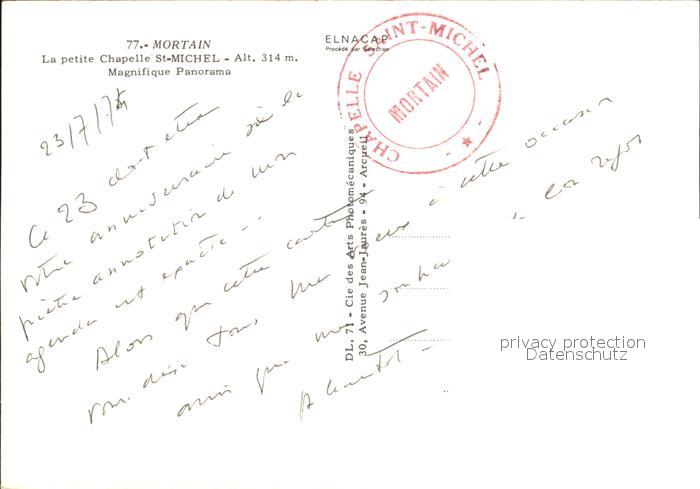 77.- MORTAIN
La petite Chapelle St-MICHEL - Alt. 314 m.
Magnifique Panorama
ELNACAP
Procédé par Sélection
CHAPELLE SAINT-MICHEL
MORTAIN
DL. 71 - Cie des Arts Photomécaniques
30, Avenue Jean-Jaurès - 94 - Arcueil
23/7/
Ce 23 doit être
votre anniversaire si la
piètre annotation de mon
agenda est exacte --
Alors que cette carte
vous dise tous mes vœux à cette occasion
ainsi que
A bientôt -
privacy protection
Datenschutz